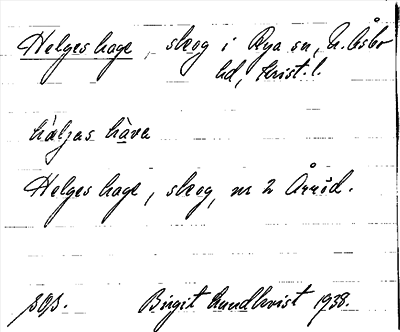 Helges hage, skog i Rya sn, N. Åsbo
hd, Krist. l.
hæljas háva
Helges hage, skog, nr 2 Årröd.
sgs. Birgit Lundkvist 1938.